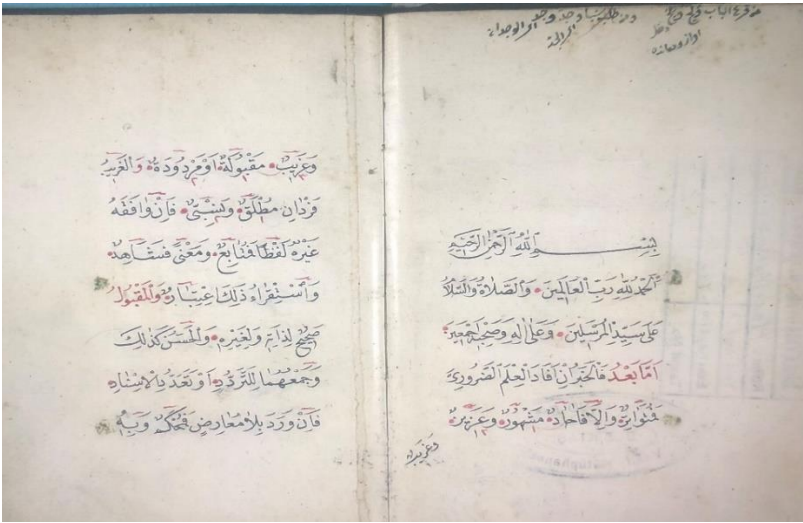 من قرع الباب ولج ولج
ومن طلب شيئا وجد وجد
بسم الله الرحمن الرحيم
الحمد لله رب العالمين والصلاة والسلام
على سيد المرسلين وعلى اله وصحبه اجمعين
اما بعد فالخبر ان افاد العلم الضروري
فمتواتر والا فاحاد مشهور وعزيز
وغريب
وغريب مقبولة او مردودة والغريب
فردان مطلق ونسبي فان وافقه
غيره لفظا فتابع ومعنى فشاهد
واستقراء ذلك اعتبار والمقبول
صحيح لذاته ولغيره والحسن كذلك
وجمعهما للتردد او تعدد الاسناد
فان ورد بلا معارض فمحكم وبه